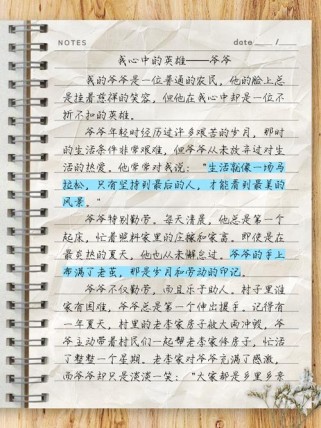 NOTES
date ___ /___
我心中的英雄——爷爷
我的爷爷是一位普通的农民，他的脸上总
是挂着慈祥的笑容，但他在我心中却是一位不
折不扣的英雄。
爷爷年轻时经历过许多艰苦的岁月。那时
的生活条件非常艰难，但爷爷从未放弃过对生
活的热爱。他常常对我说：“生活就像一场马
拉松，只有坚持到最后的人，才能看到最美的
风景。”
爷爷特别勤劳。每天清晨，他总是第一个
起床，忙着照料家里的庄稼和家畜。即使是在
最炎热的夏天，他也从未懈怠过。爷爷的手上
布满了老茧，那是岁月和劳动的印记。
爷爷不仅勤劳，而且乐于助人。村子里谁
家有困难，爷爷总是第一个伸出援手。记得有
一年夏天，村里的老李家房子被大雨冲毁，爷
爷主动带着村民们一起帮老李家修房子，忙活
了整整一个星期。老李家对爷爷充满了感激，
而爷爷却只是淡淡一笑：“大家都是乡里乡亲